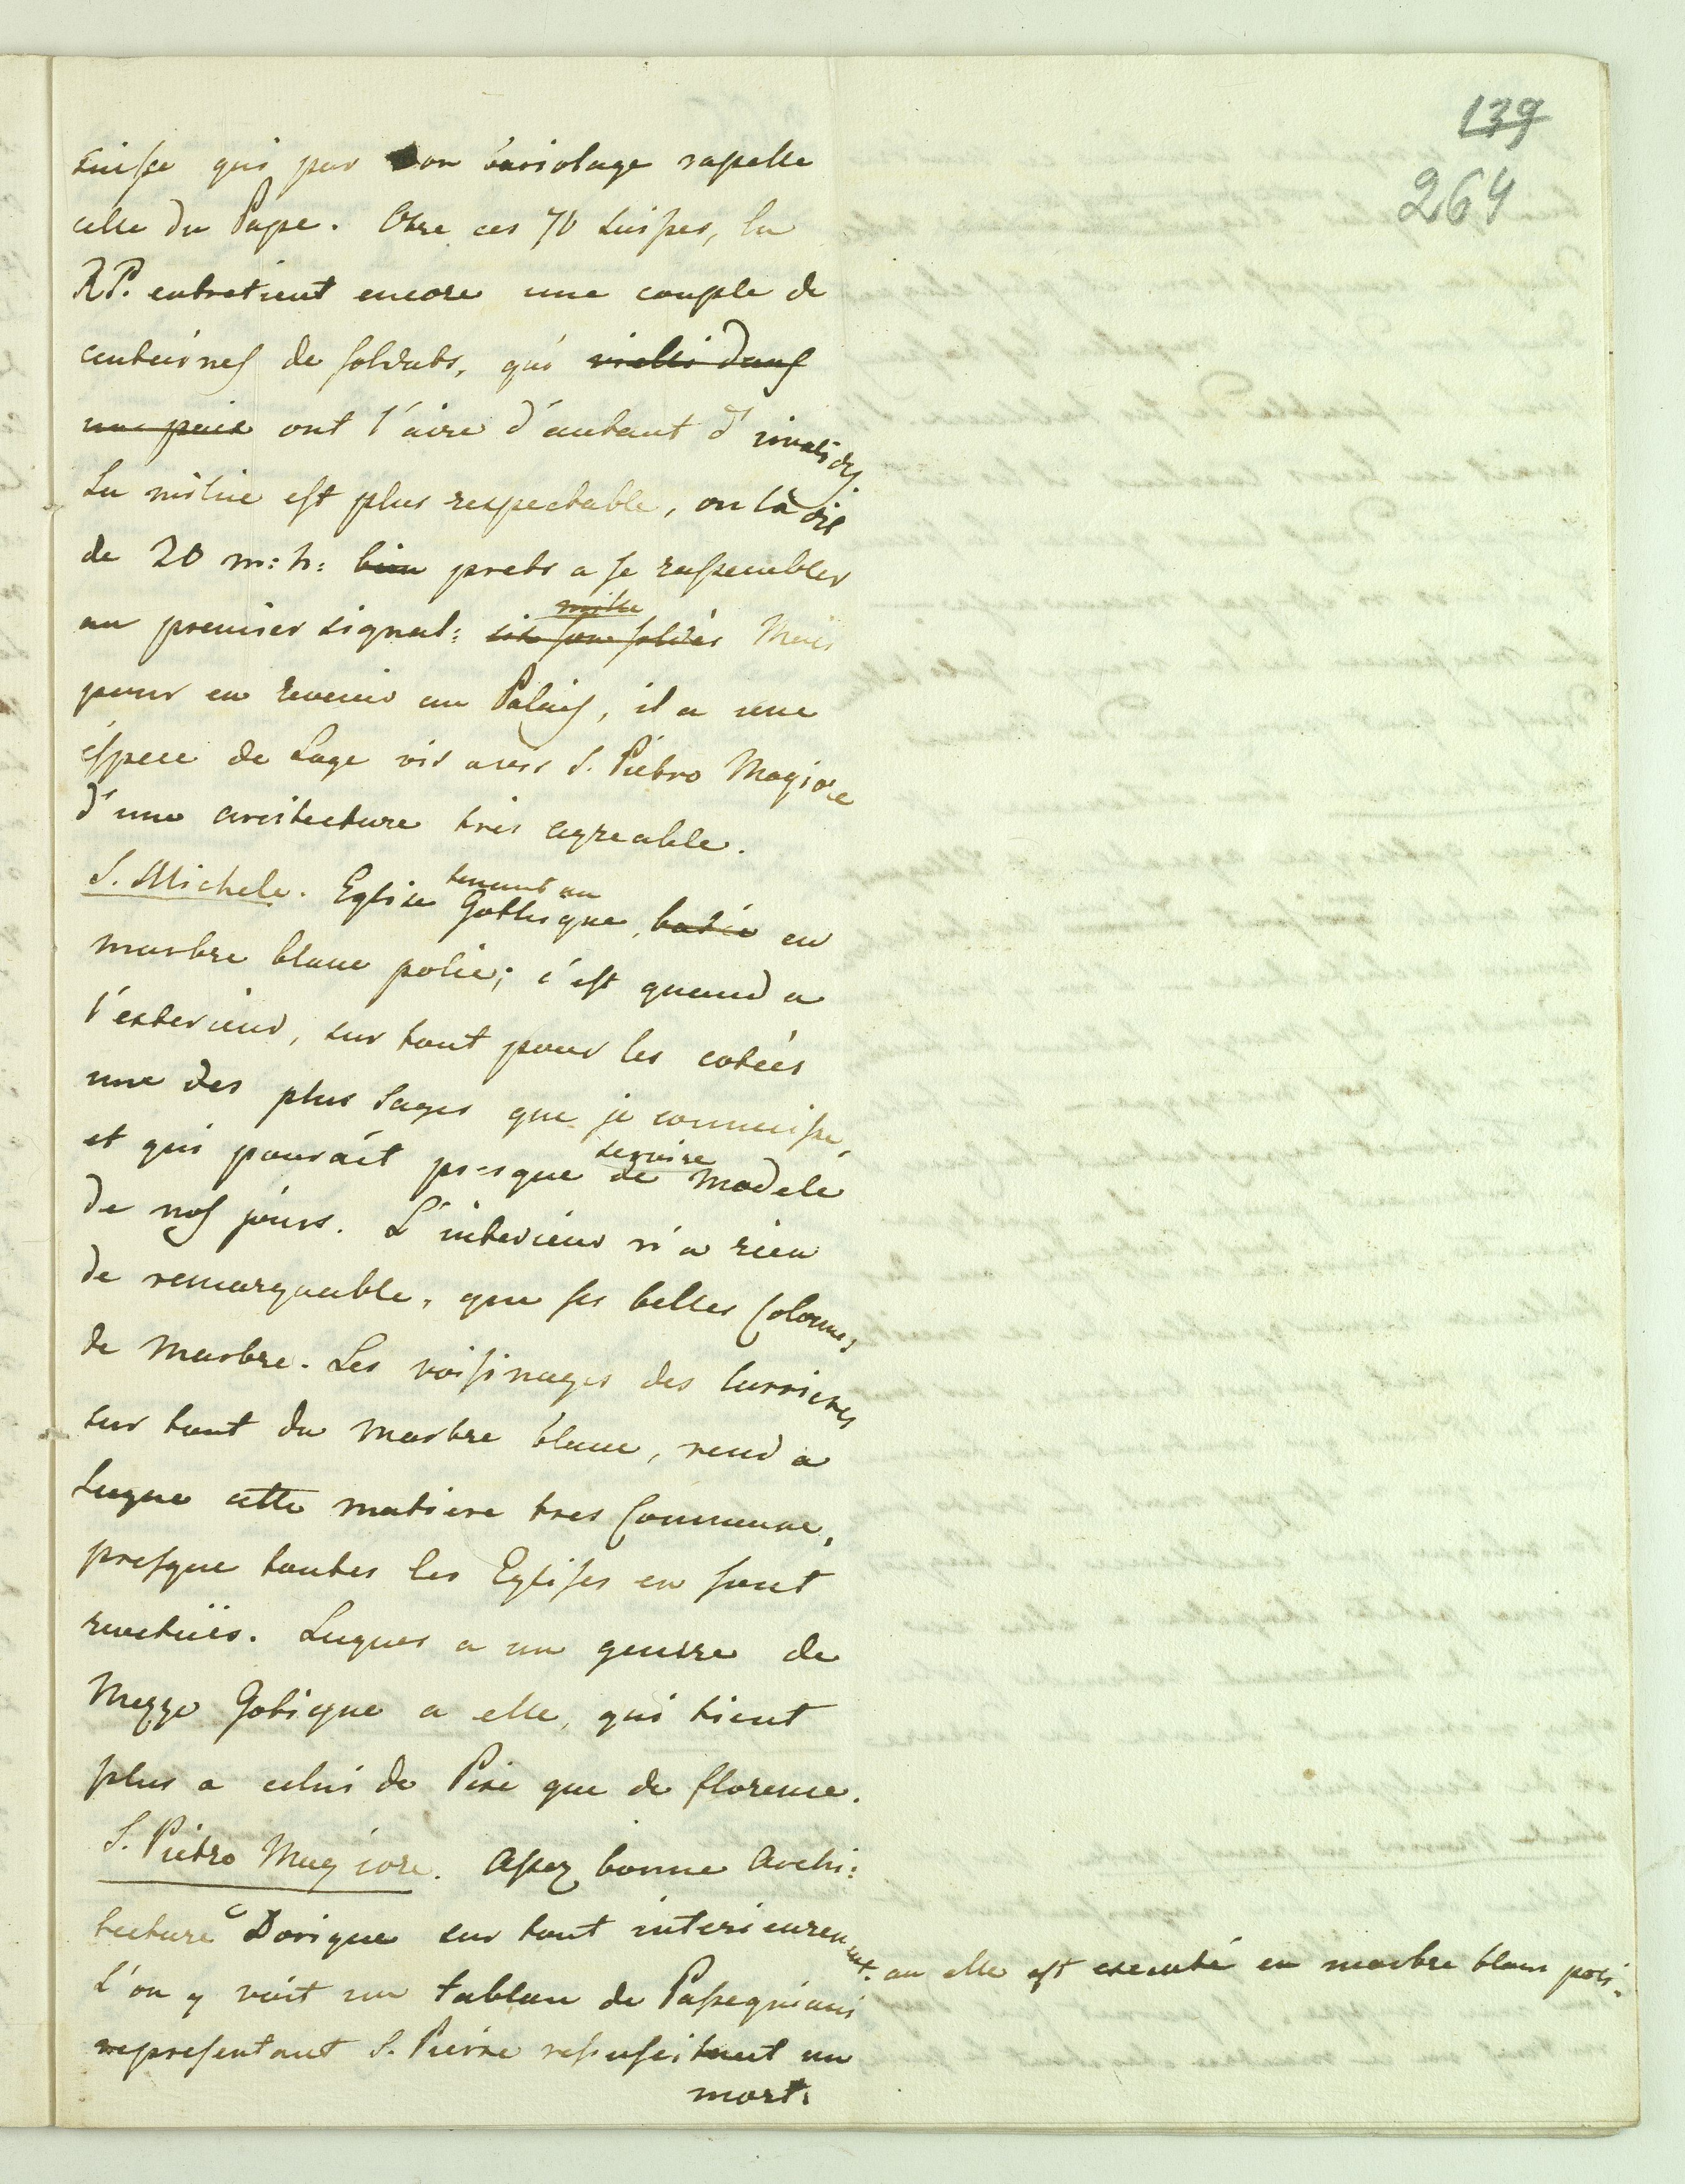 139
264
suisse qui par son bariolage rapelle
celle du Pape. Otre ces 70 suisses, la
RP. entretient encore une couple de
centeines de soldats, qui vielli dans
une paix ont l'aire d'autant d'invalides.
La milice est plus respectable, on la dit
de 20 m: h: bien prets a se rassembler
mille
au premier signal: six sont soldés Mais
pour en revenir au Palais, il a une
espece de Loge vis avis S. Pietro Magiore
d'une arcitecture tres agreable.
tenant au
S. Michele. Eglise Gothique, batie en
marbre blanc polie; c'est quand a
l'exterieur, sur tout pour les cotées
une des plus sages que je connaisse,
servire
et qui pourait presque de modele
de nos jours. L'interieur n'a rien
de remarquable, que ses belles Colonnes
de marbre. Les voisinages des carrieres
sur tout du marbre blanc, rend a
Luque cette matiere tres Commune,
presque toutes les Eglises en sont
revetuës. Luques a un genre de
Mezzo Gotique a elle, qui tient
plus a celui de Pise que de florence.
S. Pietro Magiore. Assez bonne Archi:
tecture Dorique sur tout interieurement. ou elle est executé en marbre blanc poli.
L'on y voit un tablau de Passegniani
representant S. Pierre ressussitant un
mort.